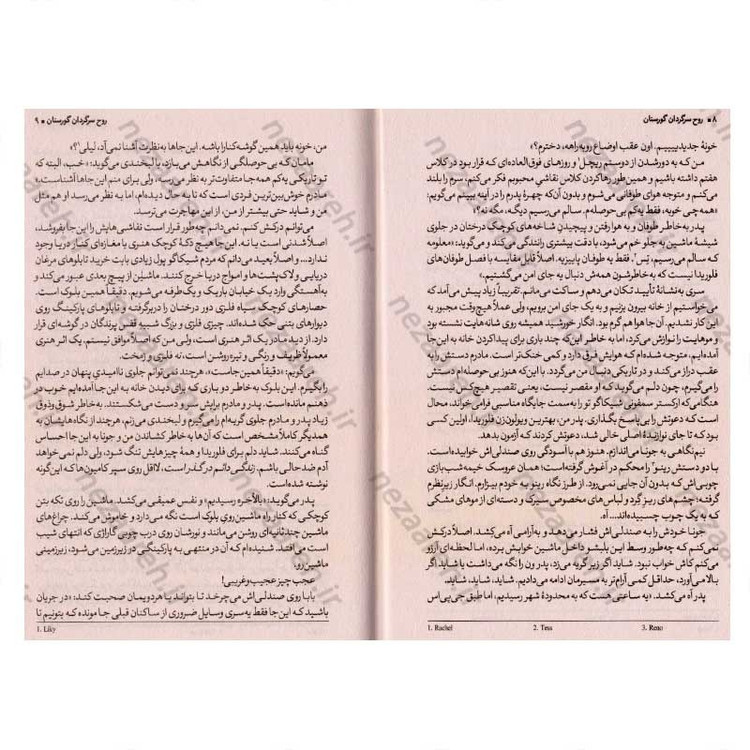 ۸ ■ روح سرگردان گورستان
خونهٔ جدیدیییییم. اون عقب اوضاع روبه‌راهه، دخترم؟»
من که به دورشدن از دوستم ریچل¹ و روزهای فوق‌العاده‌ای که قرار بود در کلاس
هفتم داشته باشیم و همین‌طور رهاکردن کلاس نقاشی محبوبم فکر می‌کنم، سرم را بلند
می‌کنم و متوجه هوای طوفانی می‌شوم و بدون آن‌که چهرهٔ پدرم را در آینه ببینم می‌گویم:
«همه چی خوبه، فقط یه‌کم بی‌حوصله‌م. سالم می‌رسیم دیگه، مگه نه؟»
پدر به‌خاطر طوفان و به هوا رفتن و پیچیدن شاخه‌های کوچک درختان در جلوی
شیشهٔ ماشین به جلو خم می‌شود، با دقت بیشتری رانندگی می‌کند و می‌گوید: «معلومه
که سالم می‌رسیم، تِس². فقط یه طوفان پاییزیه. اصلاً قابل مقایسه با فصل طوفان‌های
فلوریدا نیست که به خاطرشون همه‌ش دنبال یه جای امن می‌گشتیم.»
سری به نشانهٔ تأیید تکان می‌دهم و ساکت می‌مانم. تقریباً زیاد پیش می‌آمد که
می‌خواستیم از خانه بیرون بزنیم و به یک جای امن برویم، ولی عملاً هیچ‌وقت مجبور به
این کار نشدیم. آن‌جا هوا هم گرم بود. انگار خورشید همیشه روی شانه‌هایت نشسته بود
و موهایت را نوازش می‌کرد، اما به خاطر این‌که چند باری برای پیداکردن خانه به این‌جا
آمده‌ایم، متوجه شده‌ام که هوایش فرق دارد و کمی خنک‌تر است. مادرم دستش را به
عقب دراز می‌کند و در تاریکی دنبال من می‌گردد. با این‌که هنوز بی‌حوصله‌ام دستش
را می‌گیرم، چون دلم می‌گوید که او مقصر نیست، یعنی تقصیر هیچ‌کس نیست.
هنگامی‌که ارکستر سمفونی شیکاگو تو را به‌سمت جایگاه مناسبی فرامی‌خواند، محال
است که دعوتش را بی‌پاسخ بگذاری. پدر من، بهترین ویولن‌زن فلوریدا، اولین کسی
بود که تا جای نوازندهٔ اصلی خالی شد، دعوتش کردند که آزمون بدهد.
نیم‌نگاهی به جونا می‌اندازم. هنوز هم با آسودگی روی صندلی‌اش خوابیده‌است.
با دو دستش رینو³ را محکم در آغوش گرفته‌است؛ همان عروسک خیمه‌شب‌بازی
چوبی‌اش که بدون آن جایی نمی‌رود. از طرز نگاه رینو به خودم بیزارم. انگار زیرنظرم
گرفته؛ چشم‌های ریز گِرد و لباس‌های مخصوص سیرک و دسته‌ای از موهای مشکی
که به یک چوب چسبیده‌اند... آه.
جونا خودش را به صندلی‌اش فشار می‌دهد و به‌آرامی آه می‌کشد. اصلاً درکش
نمی‌کنم که چه‌طور وسط این بلبشو داخل ماشین خوابش برده، اما لحظه‌ای آرزو
می‌کنم کاش خواب نبود. شاید اگر زیر گریه می‌زد، پدر ون را نگه می‌داشت یا شاید اگر
بالا می‌آورد، حداقل کمی آرام‌تر به مسیرمان ادامه می‌دادیم. شاید، شاید، شاید.
پدر آه می‌کشد. «یه ساعتی هست که به محدودهٔ شهر رسیدیم، اما طبق جی‌پی‌اس
1. Rachel 2. Tess 3. Reno
روح سرگردان گورستان ■ ۹
من، خونه باید همین گوشه‌کنارا باشه. این‌جاها به‌نظرت آشنا نمی‌آد، لیلی¹؟»
مامان که بی‌حوصلگی از نگاهش می‌بارد، با لبخندی می‌گوید: «خب، البته که
تو تاریکی یه‌کم همه‌جا متفاوت‌تر به نظر می‌رسه، ولی برای منم این‌جاها آشناست.»
مادرم خوش‌بین‌ترین فردی است که تا به حال دیده‌ام، اما به نظر می‌رسد او هم مثل
من و شاید حتی بیشتر از من، از این مهاجرت می‌ترسد.
می‌توانم درکش کنم. نمی‌دانم چه‌طور قرار است نقاشی‌هایش را این‌جا بفروشد،
اصلاً شدنی است یا نه. این‌جا هیچ دکهٔ کوچک هنری یا مغازه‌ای کنار دریا وجود
ندارد... و اصلاً بعید می‌دانم که مردم شیکاگو پول زیادی بابت خرید تابلوهای مرغان
دریایی و لاک‌پشت‌ها و امواج دریا خرج کنند. ماشین از پیچ بعدی عبور می‌کند و
به‌آهستگی وارد یک خیابان باریک و یک‌طرفه می‌شویم. دقیقاً همین بلوک است.
حصارهای کوچک سیاه فلزی دور درختان را دربرگرفته و تابلوهای پارکینگ روی
دیوارهای بتنی حک شده‌اند. چیزی فلزی و بزرگ شبیه قفس پرندگان در گوشه‌ای قرار
دارد. از دید مادر یک اثر هنری است، ولی من که اصلاً موافق نیستم. یک اثر هنری
معمولاً ظریف و رنگی و تیره‌روشن است، نه فلزی و زمخت.
می‌گویم: «دقیقاً همین‌جاست»، هرچند نمی‌توانم جلوی ناامیدی پنهان در صدایم
را بگیرم. این بلوک به خاطر دو باری که برای دیدن خانه به این‌جا آمده‌ایم خوب در
ذهنم مانده‌است. پدر و مادرم برایش سر و دست می‌شکستند. به‌خاطر شوق‌وذوق
زیاد پدر و مادرم جلوی گریه‌ام را می‌گیرم و لبخندی می‌زنم، هرچند از نگاه‌هایشان به
همدیگر کاملاً مشخص است که آن‌ها به خاطر کشاندن من و جونا به این‌جا احساس
گناه می‌کنند. شاید دلم برای فلوریدا و همهٔ چیزهایش تنگ شود، ولی دلم نمی‌خواهد
آدم ضدحالی باشم. زندگی دائم در گذر است، لااقل روی سپر کامیون‌ها که این‌گونه
نوشته شده‌است.
پدر می‌گوید: «بالأخره رسیدیم» و نفس عمیقی می‌کشد. ماشین را روی تکه بتن
کوچکی که کنار رد ماشین‌روی بلوک است نگه می‌دارد و خاموش می‌کند. چراغ‌های
ماشین چند ثانیه‌ای روشن می‌مانند و نورشان روی درب چوبی گاراژی که انتهای شیب
است می‌افتد. شنیده‌ام که آن در منتهی به پارکینگی در زیرزمین می‌شود، زیرزمینی
ماشین‌رو.
عجب چیز عجیب‌وغریبی!
بابا روی صندلی‌اش می‌چرخد تا بتواند با هردویمان صحبت کند: «در جریان
باشید که این‌جا فقط یه‌سری وسایل ضروری از ساکنان قبلی جا مونده که بتونیم تا
1. Liky